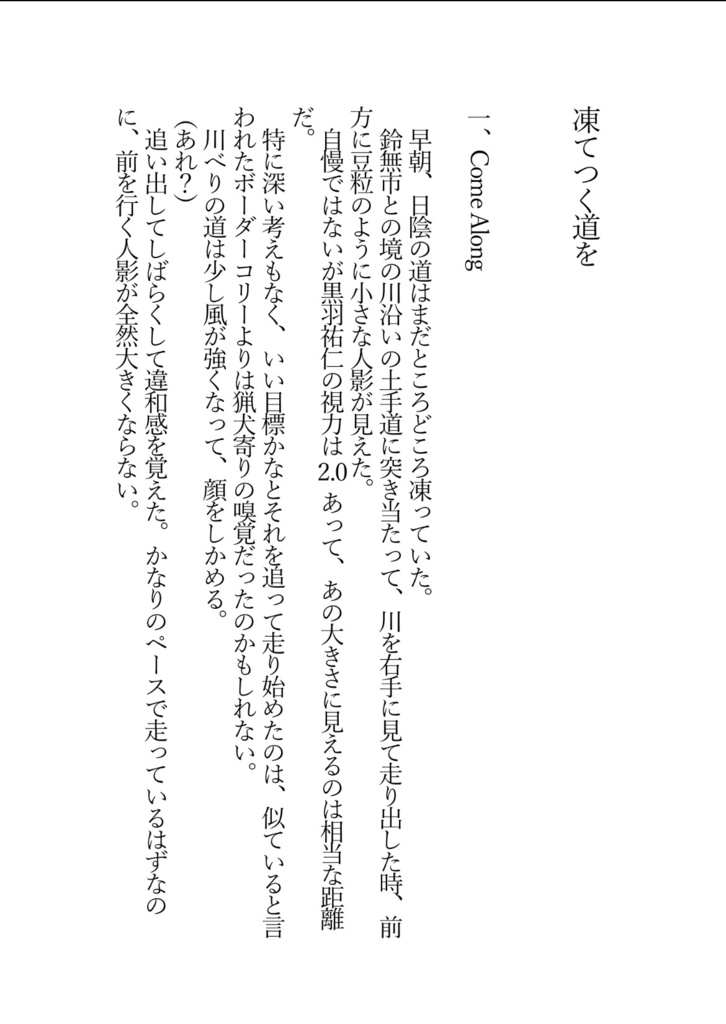 凍てつく道を
一、Come Along
早朝、日陰の道はまだところどころ凍っていた。
鈴無市との境の川沿いの土手道に突き当たって、川を右手に見て走り出した時、前
方に豆粒のように小さな人影が見えた。
自慢ではないが黒羽祐仁の視力は2.0あって、あの大きさに見えるのは相当な距離
だ。
特に深い考えもなく、いい目標かなとそれを追って走り始めたのは、似ていると言
われたボーダーコリーよりは猟犬寄りの嗅覚だったのかもしれない。
川べりの道は少し風が強くなって、顔をしかめる。
(あれ?)
追い出してしばらくして違和感を覚えた。かなりのペースで走っているはずなの
に、前を行く人影が全然大きくならない。